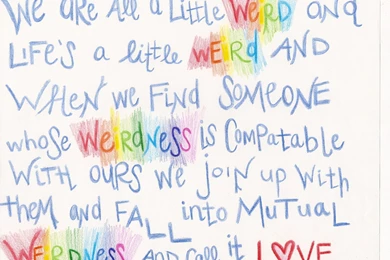 We ARE All a Little WeiRD and
LiFE'S a little WEIRD AND
WHEN we FiND SOMEONE
whose WeiRDNESS is CoMPATABLE
WiTH OURS WE joiN up With
them and FALL into MUTUAL
WEiRDNESS AND CAll it LOVE